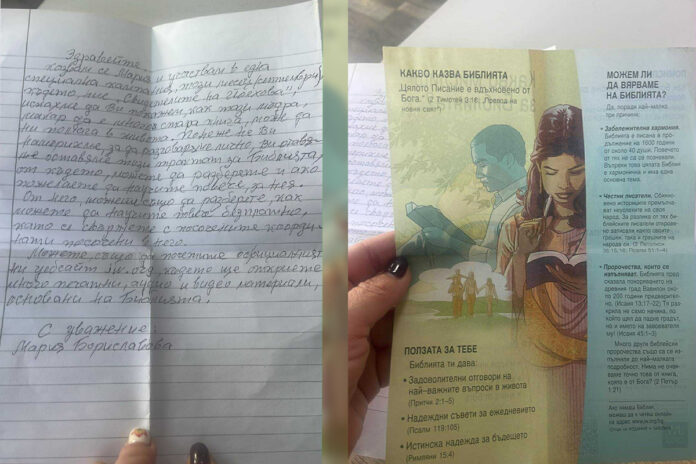 Здравейте,
казвам се Мария и участвам в една
специална кампания, този месец (септември),
където ние, „Свидетелите на Йехова",
искаме да Ви покажем, как тази книга,
макар да е много стара книга, може да
ни помага в живота. Понеже не Ви
намерихме, за да разговаряме лично, Ви
оставяме този трактат за Библията,
от където, можете да разберете и ако
пожелаете да научите повече за нея.
От него, можете също да разберете, как
можете да научите повече безплатно,
като се свържете с посочените координ-
нати посочени в него.
Можете също да посетите официалният
ни уебсайт jw.org, където ще откриете
много печатни, аудио и видео материали,
основани на Библията.
С уважение:
Мария Бориславова
КАКВО КАЗВА БИБЛИЯТА
„Цялото Писание е вдъхновено от
Бога." (2 Тимотей 3:16, „Превод на
новия свят")
ПОЛЗАТА ЗА ТЕБЕ
Библията ти дава:
• Задоволителни отговори на
най-важните въпроси в живота
(Притчи 2:1–5)
• Надеждни съвети за ежедневието
(Псалм 119:105)
• Истинска надежда за бъдещето
(Римляни 15:4)
МОЖЕМ ЛИ
ДА ВЯРВАМЕ
НА БИБЛИЯТА?
Да, поради най-малко
три причини:
• Забележителна хармония.
Библията е писана в про-
дължение на 1600 години
от около 40 души. Повечето
от тях не са се познавали.
Въпреки това цялата Библия
е хармонична и има една
основна тема.
• Честни писатели. Обикно-
вено историците премълча-
ват неуспехите на своя
народ. За разлика от тях
библейските писатели откро-
вено записвали както своите
грешки, така и грешките на
народа си. (2 Летописи
36:15, 16; Псалм 51:1–4)
• Пророчества, които се
изпълняват. Библията пред-
сказала покоряването на
древния град Вавилон около
200 години предварител-
но. (Исаия 13:17–22) Тя раз-
крила не само начина, по
който щял да падне градът,
но и името на завоевателя
му! (Исаия 45:1–3)
Много други библейски
пророчества също са се из-
пълнили до най-малката
подробност. Нима не очак-
ваме точно това от книга,
която е от Бога? (2 Петър
1:21)